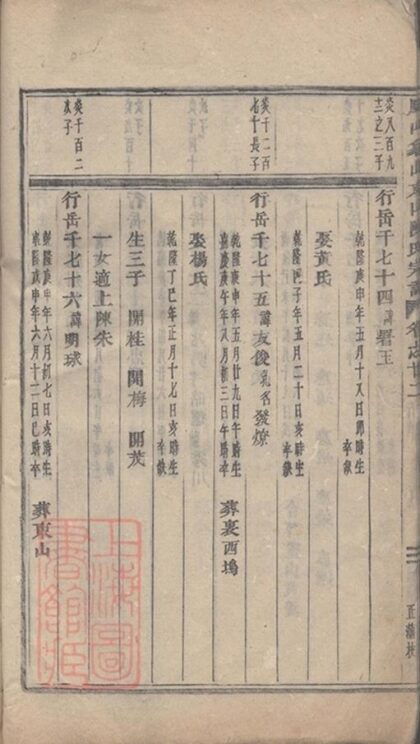 炎八百九
十二之三子
行岳千七十四諱署玉
乾隆庚申年五月十八日卯時生
卒缺
娶黃氏
乾隆甲子年五月二十日亥時生
卒缺
炎千二百
七十長子
行岳千七十五諱友俊乳名發燎
乾隆庚申年五月廿九日午時生
嘉慶庚午年八月初三日午時卒
葬裏西塢
娶楊氏
乾隆丁巳年正月十七日亥時生
卒缺
生三子 開桂 開梅 開茂
一女適上陳朱
炎千百二
次子
行岳千七十六諱明球
乾隆庚申年六月初七日亥時生
乾隆戊申年六月十二日巳時卒
葬東山
上海圖
書館